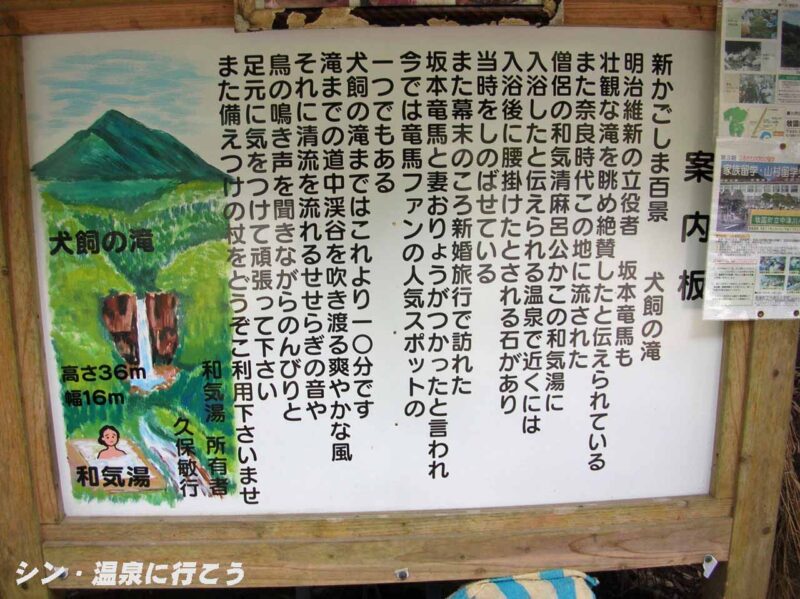 案内板
新かごしま百景　犬飼の滝
明治維新の立役者　坂本竜馬も
壮観な滝を眺め絶賛したと伝えられている
また奈良時代この地に流された
僧侶の和気清麻呂公かこの和気湯に
入浴したと伝えられる温泉で近くには
入浴後に腰掛けたとされる石があり
当時をしのばせている
また幕末のころ新婚旅行で訪れた
坂本竜馬と妻おりょうがつかったと言われ
今では竜馬ファンの人気スポットの
一つでもある
犬飼の滝まではこれより一〇分です
滝までの道中渓谷を吹き渡る爽やかな風
それに清流を流れるせせらぎの音や
鳥の鳴き声を聞きながらのんびりと
足元に気をつけて頑張って下さい
また備えつけの杖をどうぞご利用下さいませ
和気湯　所有者
久保敏行
犬飼の滝
高さ36m
幅16m
和気湯
家族留学・山村留学
シン・温泉に行てう